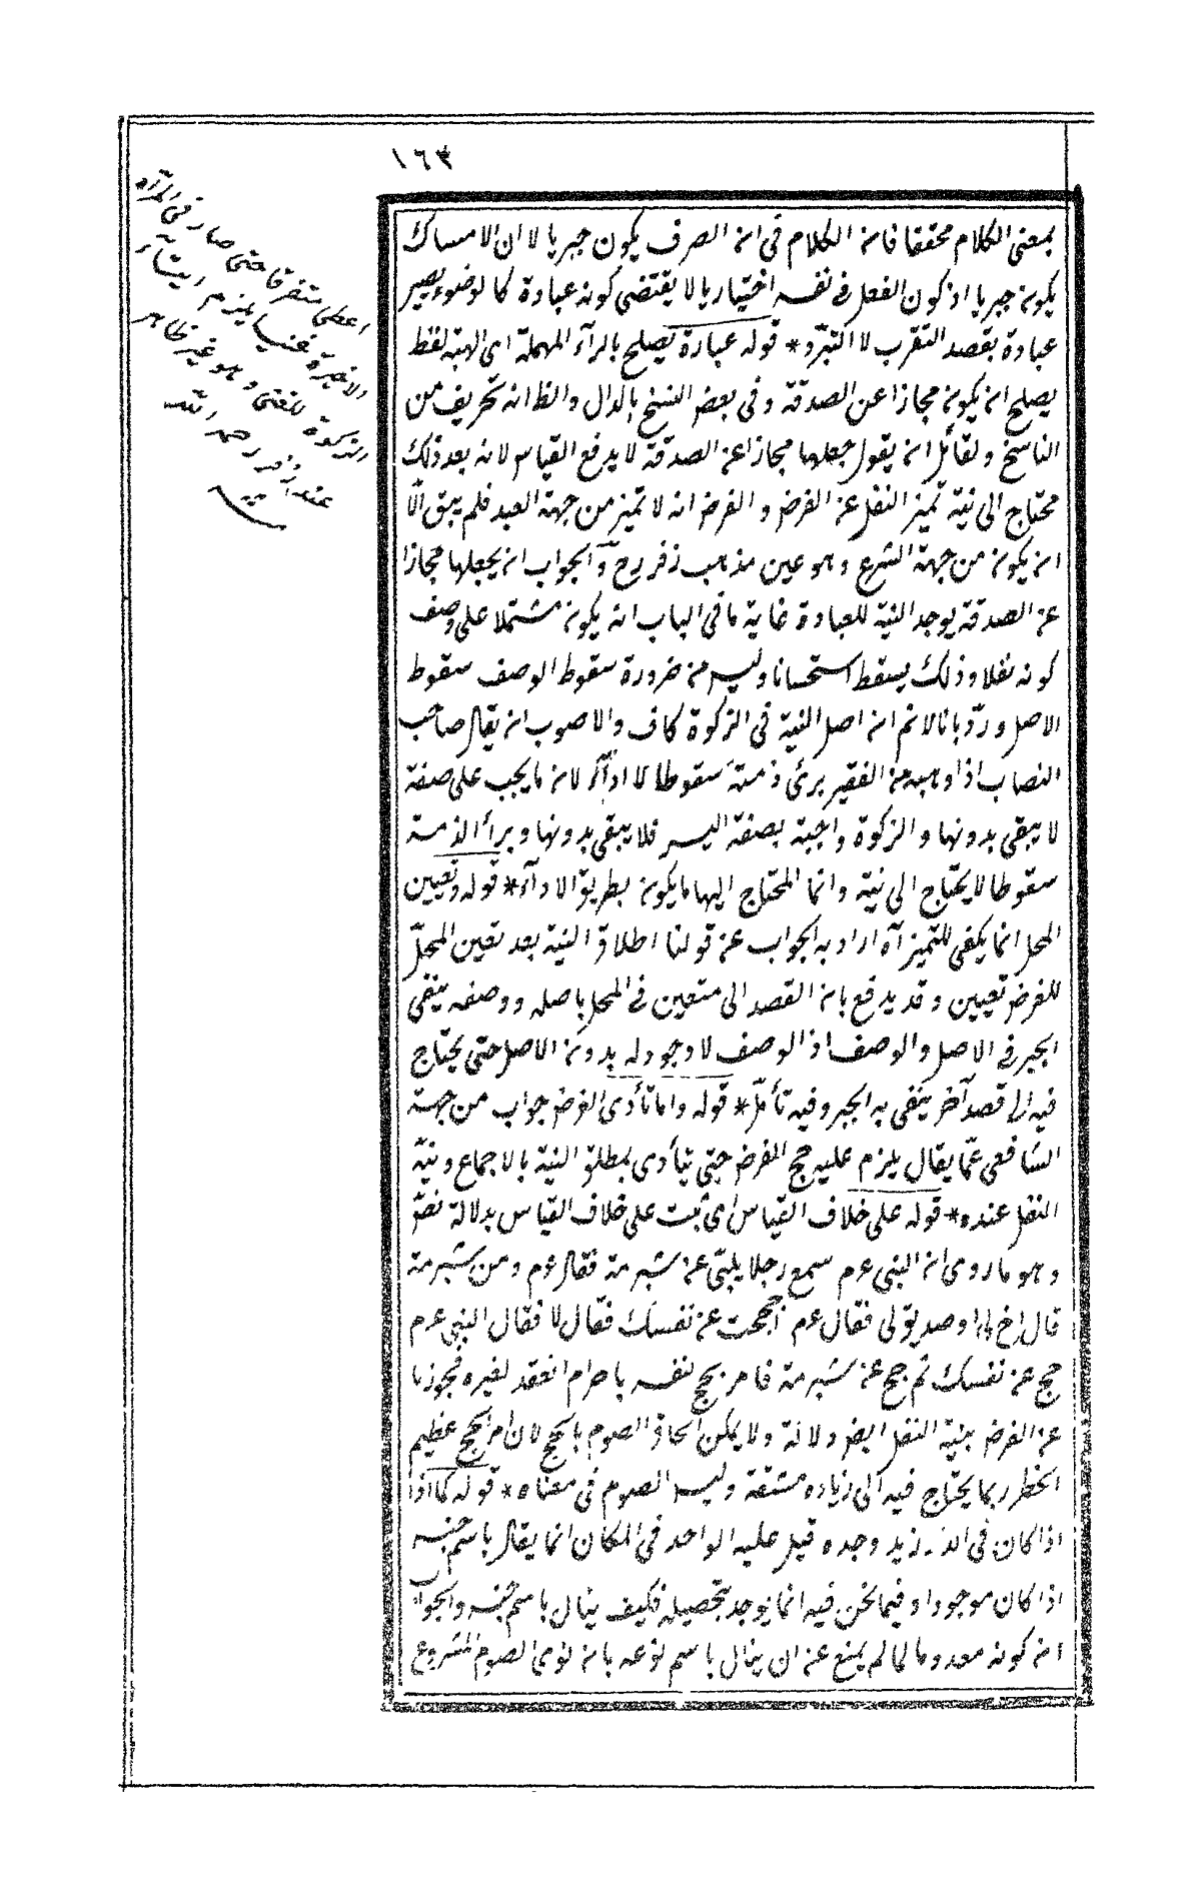 ١٦٣
بمعنى الكلام محققا فان الكلام فى ان الصرف يكون جبريا لا ان الامساك
يكون جبريا اذ كون الفعل فى نفسه اختياريا لا يقتضى كونه عبادة كالوضوء يصير
عبادة بقصد التقرب لا التبرّد * قوله عبارة يصلح بالرآء المهملة اى الهبة لفظ
يصلح ان يكون مجازا عن الصدقة وفى بعض النسخ بالدال والظ انه تحريف من
الناسخ ولقائل ان يقول جعلها مجازا عن الصدقة لا يدفع القياس لانه بعد ذلك
محتاج الى نية تميز النفل عن الفرض والفرض انه لا تميز من جهة العبد فلم يبق الّا
ان يكون من جهة الشرع وهو عين مذهب زفر رح وآلجواب ان يجعلها مجازا
عن الصدقة يوجد النية للعبادة غاية ما فى الباب انه يكون مشتملا على وصف
كونه نفلا وذلك يسقط استحسانا وليس من ضرورة سقوط الوصف سقوط
الاصل وردّ بانا لا نم ان اصل النية فى الزكوة كاف والاصوب ان يقال صاحب
النصاب اذا وهبه من الفقير برئ ذمته سقوطا لا ادآء لان ما يجب على صفة
لا يبقى بدونها والزكوة واجبة بصفة اليسر فلا يبقى بدونها وبرأ الذمة
سقوطا لا يحتاج الى نية وانما المحتاج اليها ما يكون بطريق الادآء * قوله وتعيين
المحل انما يكفى للتميز آه اراد به الجواب عن قولنا اطلاق النية بعد تعين المحلّ
للفرض تعيين وقد يدفع بان القصد الى متعين فى المحل باصله ووصفه ينفى
الجبر فى الاصل والوصف اذ الوصف لا وجود له بدون الاصل حتى يحتاج
فيه الى قصد آخر ينفى به الجبر وفيه تأمّل * قوله واما تأدى الفرض جواب من جهة
الشافعى عمّا يقال يلزم عليه حج الفرض حيث يتأدى بمطلق النية بالاجماع ونيّة
النفل عنده * قوله على خلاف القياس اى ثبت على خلاف القياس بدلالة نصّ
وهو ما روى ان النبى عم سمع رجلا يلبّى عن شبرمة فقال عم ومن شبرمة
قال اخ لى او صديق لى فقال عم أحججت عن نفسك فقال لا فقال النبى عم
حج عن نفسك ثم حج عن شبرمة فامر بحج نفسه باحرام انعقد لغيره فجوزنا
عن الفرض بنية النفل ايضا دلالة ولا يمكن الحاق الصوم بالحج لان امر الحج عظيم
الخطر ربما يحتاج فيه الى زيادة مشقة وليس الصوم فى معناه * قوله كما اذا
اذا كان فى الدار زيد وحده قيل عليه الواحد فى المكان انما يقال باسم جنسه
اذا كان موجودا وفيما نحن فيه انما يوجد بتحصيله فكيف ينال باسم جنسه والجواب
ان كونه معدوما لما لم يمنع عن ان ينال باسم نوعه بان نوى الصوم المشروع
اعطى متفرقا حتى صار فى المرّة
الاخيرة غنيا يلزم ايتاء
الزكوة للغنى وهو غير ظاهر
عند زفر رحمه الله